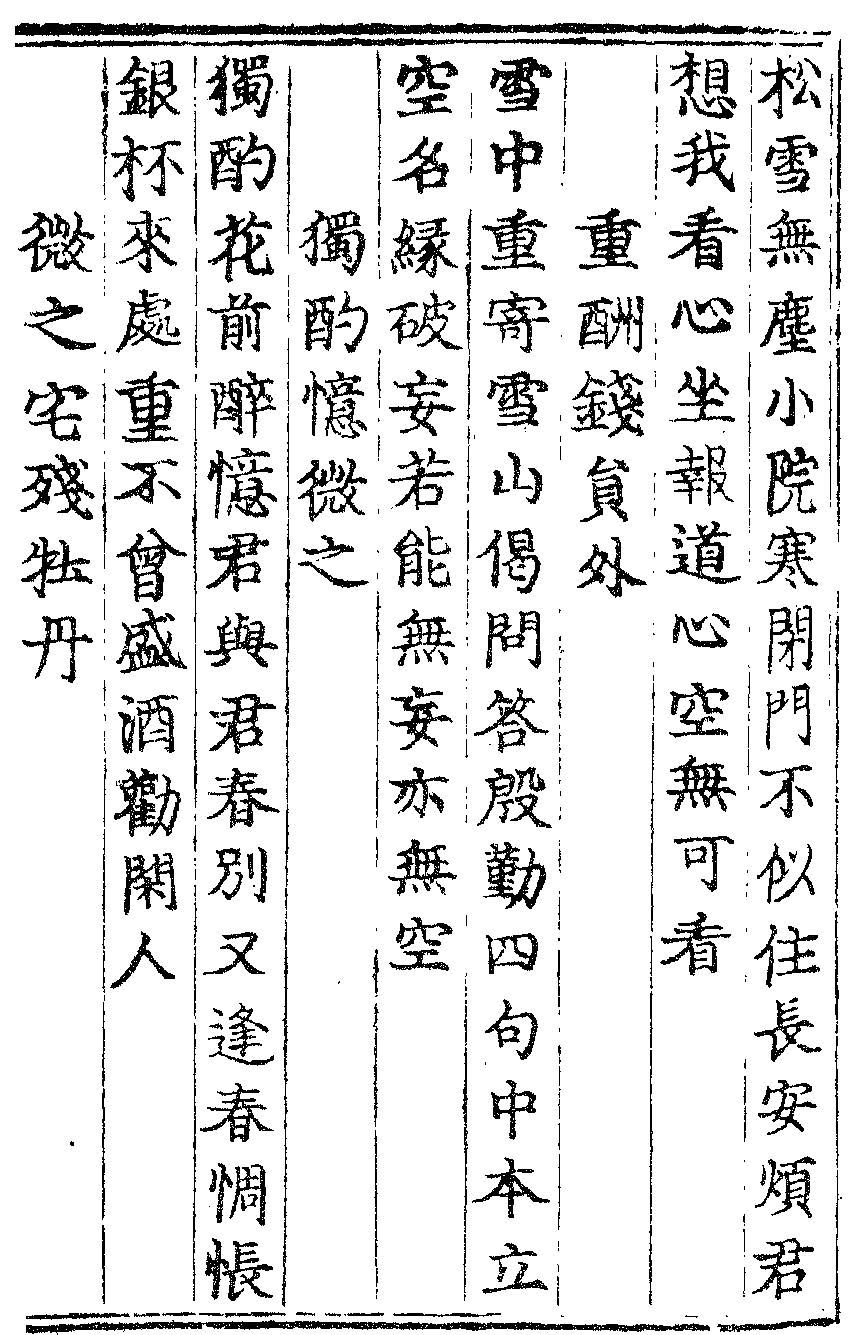 松雪無塵小院寒閉門不似住長安煩君
想我看心坐報道心空無可看
重酬錢貟外
雪中重寄雪山偈問答殷勤四句中本立
空名緣破妄若能無妄亦無空
獨酌憶微之
獨酌花前醉憶君與君春別又逢春惆悵
銀杯來處重不曾盛酒勸閑人
微之宅殘牡丹